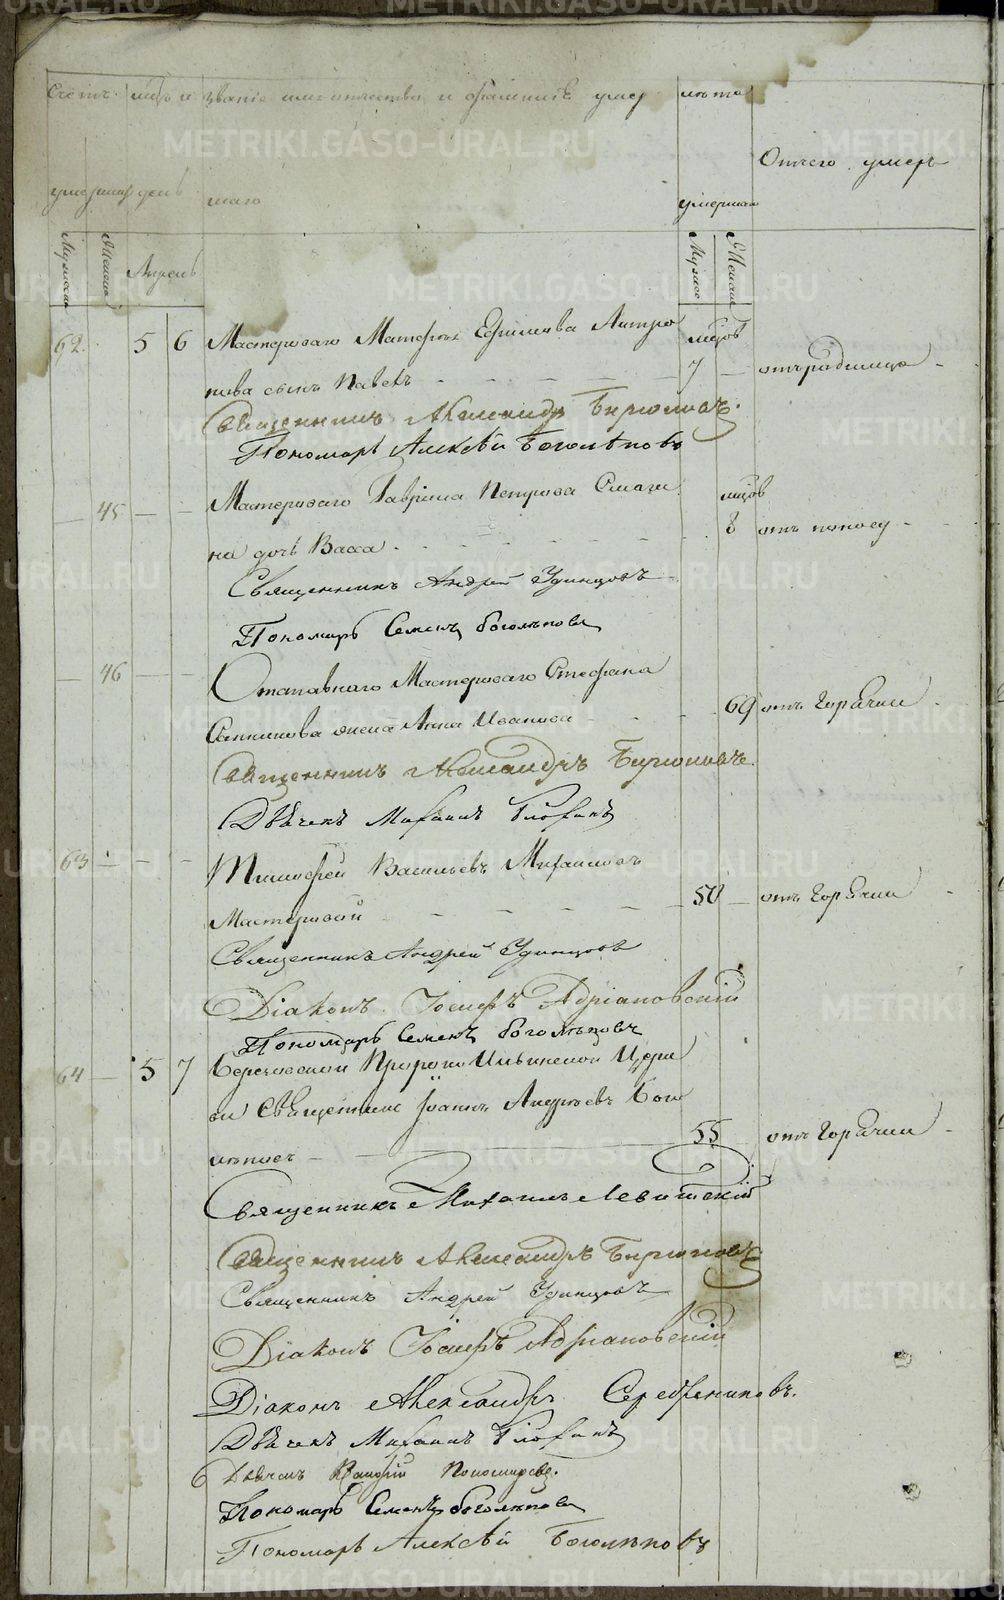 Счетъ месяцъ и званіе имя отчество и фамилія умер лѣта
Отчего умеръ
умершихъ день
шаго
умершаго
Мужеска Женска Апрель Мужес Женск
62 5 6 Мастероваго Матфея Ефимова
мцов
сынъ Павелъ 7 отъ родимца
Священникъ Александръ Бирюковъ.
Пономарь Алексѣй Боголѣповъ
45 Мастероваго Гавріила Петрова
мцов
на дочь Васса 8 отъ поносу
Священникъ Андрей Удинцовъ
Пономарь Семенъ Боголѣповъ
46 Отставнаго Мастероваго Стефана
жена Анна Иванова 69 отъ Горячки
Священникъ Александръ Бирюковъ
Дьячекъ Михаилъ
63 Тимофей Васильевъ Михайловъ
Мастеровой 50 отъ Горячки
Священникъ Андрей Удинцовъ
Діаконъ Іосифъ Адріановскій
Пономарь Семенъ Боголѣповъ
64 5 7 Березовской Пророко Ильинской Церк
ви Священникъ Іоаннъ Андреевъ Бого
лѣповъ 55 отъ Горячки
Священникъ Михаилъ Левитскій
Священникъ Александръ Бирюковъ
Священникъ Андрей Удинцовъ
Діаконъ Іосифъ Адріановскій
Діаконъ Александръ Серебрениковъ.
Дьячекъ Михаилъ
Дьячекъ Пономаревъ.
Пономарь Семенъ Боголѣповъ
Пономарь Алексѣй Боголѣповъ
METRIKI.GASO-URAL.RU